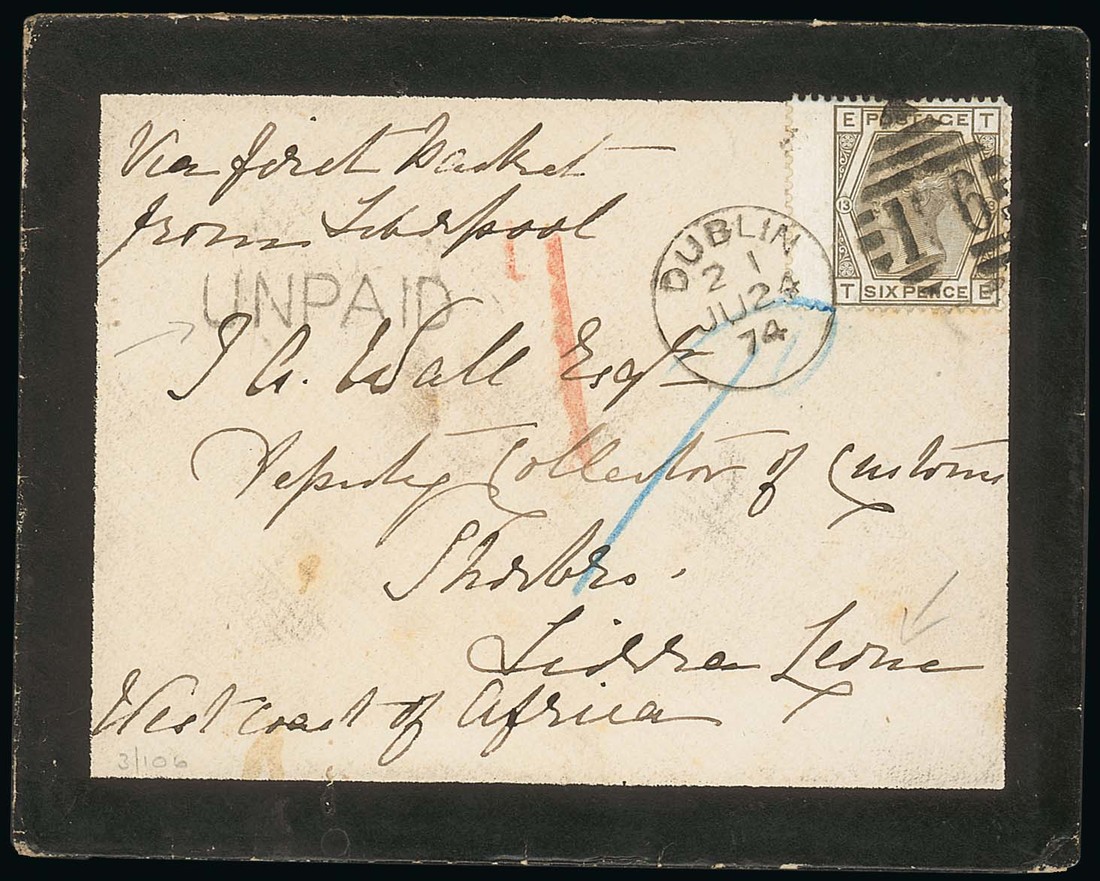 Via first Packet
from Liverpool
UNPAID
1
J A. Wall Esqre
Deputy Collector of Customs
Sherbro.
Sierra Leone
West Coast of Africa
3/106
DUBLIN
2 1
JU 24
74
E POSTAGE T
13 13
T SIX PENCE E